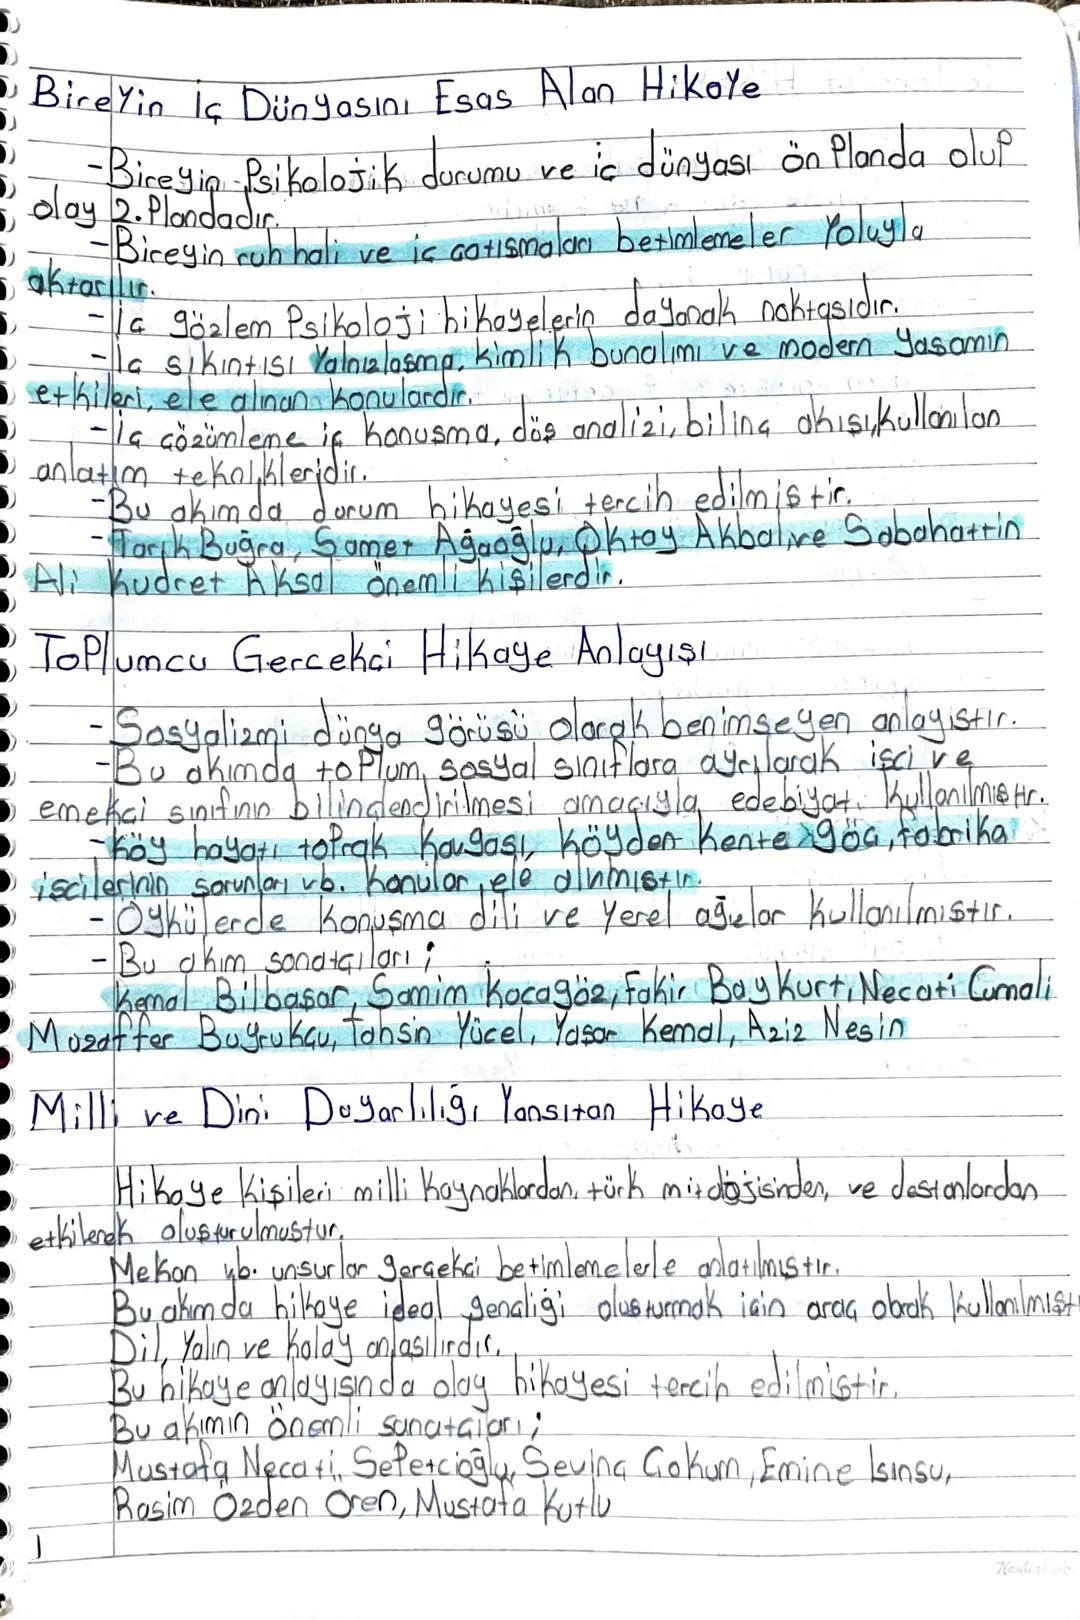 Bireyin İç Dünyasını Esas Alan Hikaye
-Bireyin Psikolojik durumu ve iç dünyası ön Planda olup
olay 2. Plandadır.
-Bireyin ruh hali ve iç çatışmaları betimlemeler Yoluyla
aktarılır.
-İç gözlem Psikoloji hikayelerin dayanak noktasıdır.
-İç sıkıntısı Yalnızlaşma, kimlik bunalımı ve modern yaşamın
etkileri, ele alınan konulardır.
-İç çözümleme iç konuşma, düş analizi, bilinç akışı, kullanılan
anlatım teknikleridir.
-Bu akımda durum hikayesi tercih edilmiştir.
-Tarık Buğra, Samet Ağaoğlu, Oktay Akbal, ve Sabahattin
Ali Kudret Aksal önemli kişilerdir.
Toplumcu Gercekçi Hikaye Anlayışı
-Sosyalizmi dünya görüşü olarak benimseyen anlayıştır.
-Bu akımda toplum, sosyal sınıflara ayrılarak işçi ve
emekçi sınıfının bilinçlendirilmesi amacıyla edebiyat kullanılmıştır.
-Köy hayatı toprak kavgası, köyden kente göç, fabrika
işcilerinin sorunları vb. konular ele alınmıştır.
-Öykülerde konuşma dili ve yerel ağızlar kullanılmıştır.
-Bu akım sanatçıları;
Kemal Bilbaşar, Samim Kocagöz, Fakir Baykurt, Necati Cumalı
Muzaffer Buyrukçu, Tahsin Yücel, Yaşar Kemal, Aziz Nesin
Milli ve Dini Duyarlılığı Yansıtan Hikaye
Hikaye Kişileri milli kaynaklardan, türk mitolojisinden, ve destanlardan
etkilenerek oluşturulmuştur.
Mekan vb. unsurlar gerçekçi betimlemelerle anlatılmıştır.
Bu akımda hikaye ideal gençliği oluşturmak için araç olarak kullanılmıştı
Dil, Yalın ve kolay anlaşılırdır.
Bu hikaye anlayışında olay hikayesi tercih edilmiştir.
Bu akımın önemli sanatçıları;
Mustafa Necati, Sepetcioğlu, Sevinç Çokum, Emine Işınsu,
Rasim Özden Ören, Mustafa Kutlu